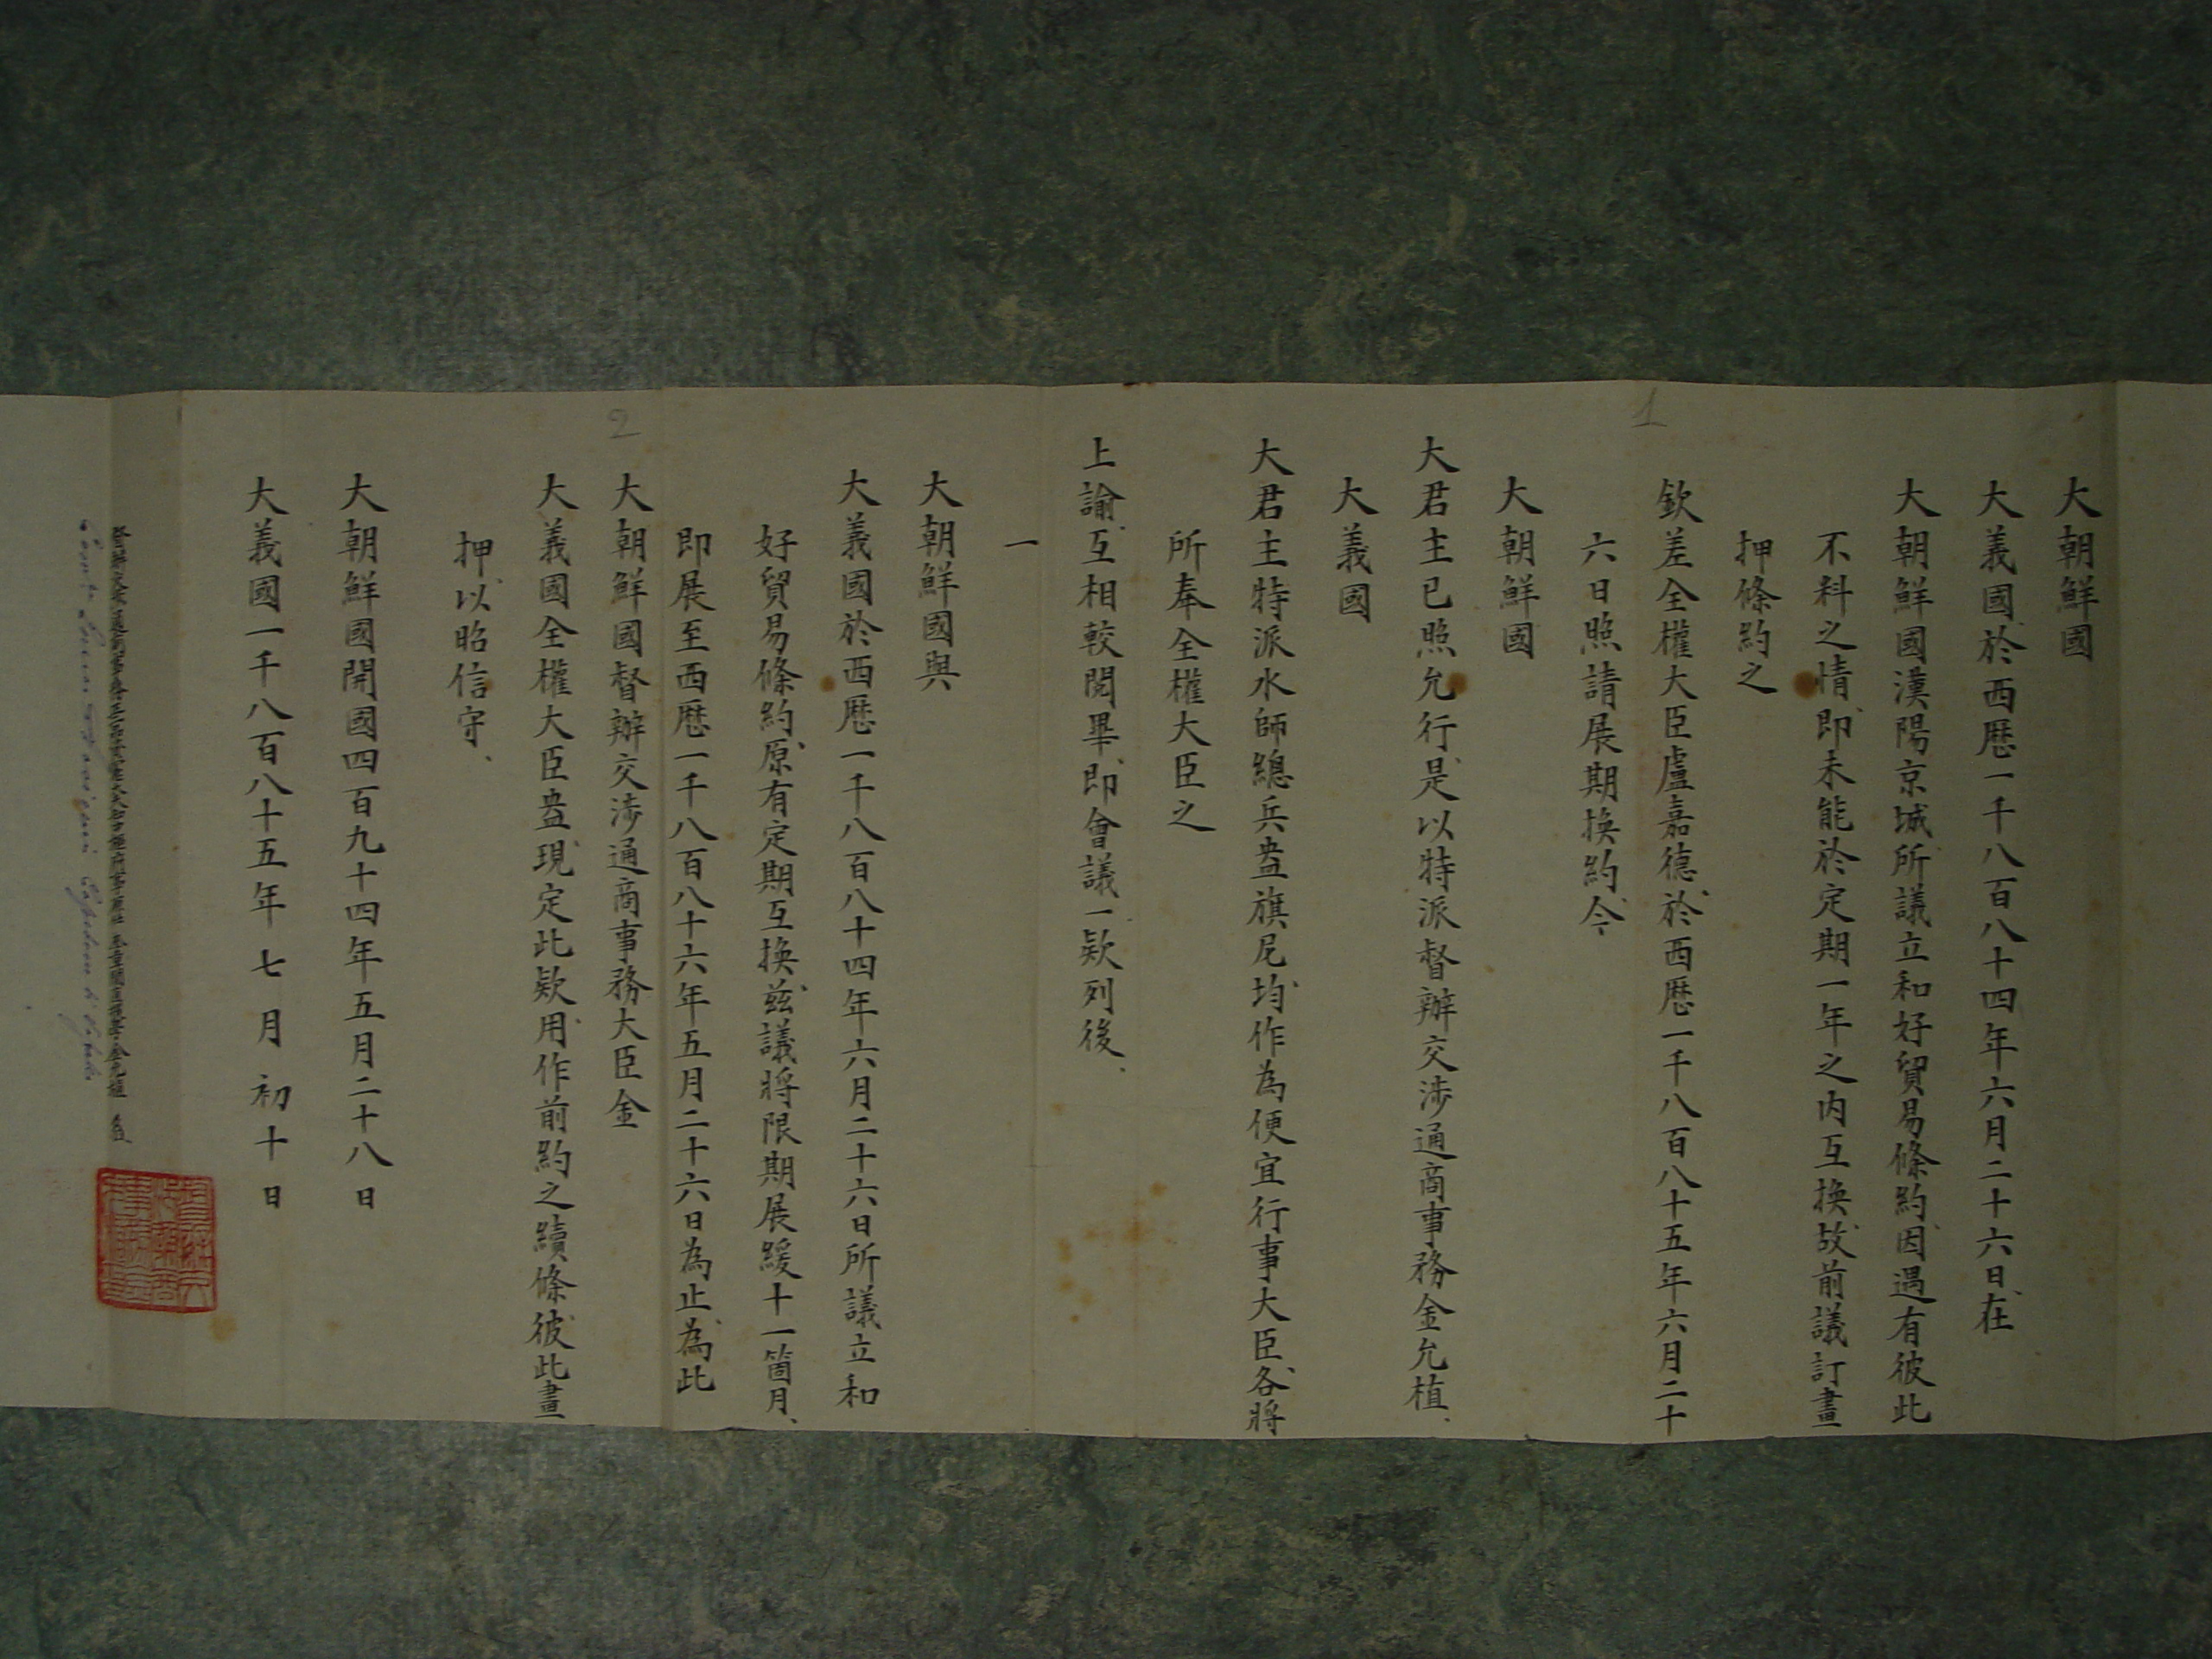 大朝鮮國
大義國、於西曆一千八百八十四年六月二十六日、在
大朝鮮國漢陽京城所議立和好貿易條約、因遇有彼此
不料之情、即未能於定期一年之內互換、故前議訂畫
押條約之
欽差全權大臣盧嘉德、於西曆一千八百八十五年六月二十
六日照請展期換約、今
大朝鮮國
大君主已照允行、是以特派督辦交涉通商事務金允植、
大義國
大君主特派水師總兵盎旗尼、均作為便宜行事大臣、各將
所奉全權大臣之
上諭、互相較閱畢、即會議一款列後、
一
大朝鮮國與
大義國於西曆一千八百八十四年六月二十六日所議立和
好貿易條約、原有定期互換、茲議將限期展緩十一箇月、
即展至西曆一千八百八十六年五月二十六日為止、為此
大朝鮮國督辦交涉通商事務大臣金
大義國全權大臣盎、現定此款、用作前約之續條、彼此畫
押、以昭信守、
大朝鮮國開國四百九十四年五月二十八日
大義國一千八百八十五年七月初十日
1
2